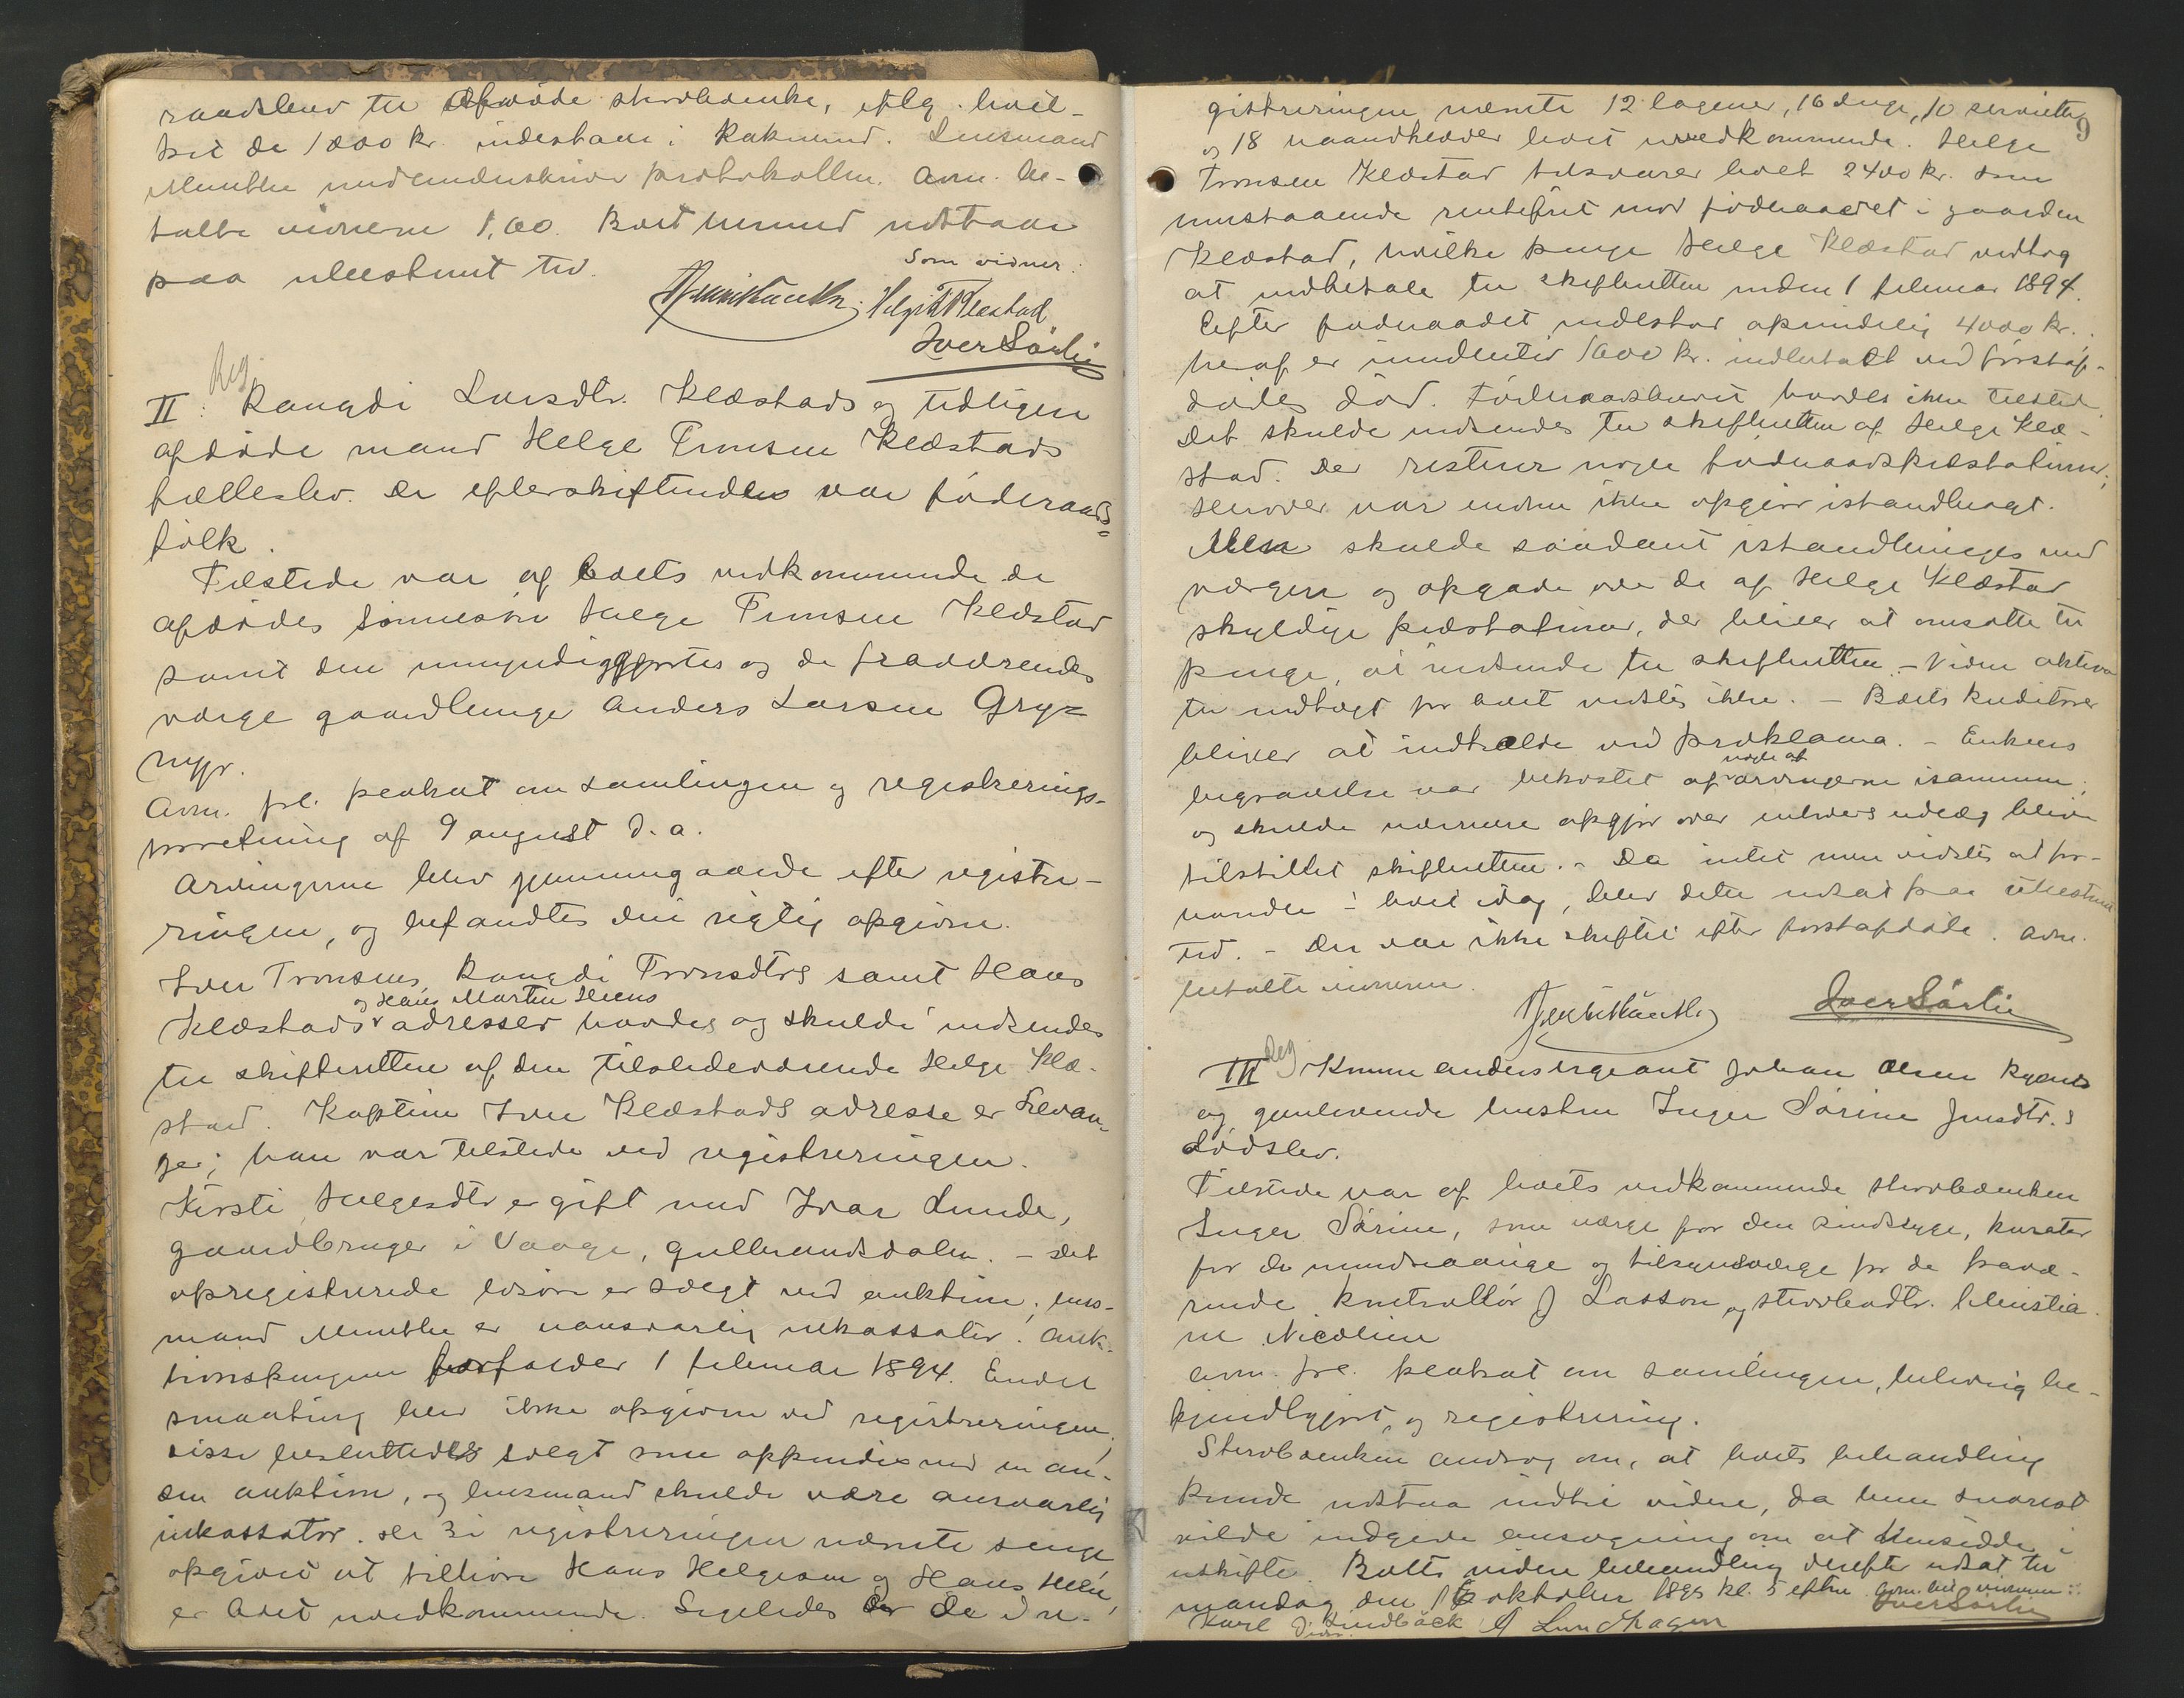 raadsbrev til Afdøde sterbboenke, iflg. hvil-
ket de 1000 kr. indestaar i Rakund. Lensmand
Munthe medunderskriver protokollen. Avm. be-
talte vidnerne 1,60. Boet hermed udstaar
paa ubestemt tid.
Som vidner:
Helge T Klæstad
Iver Sørlie
Reg.
II: Rangdi Larsdtr. Klæstads og tidligere
afdøde mand Helge Tronsen Klæstads
fællesbo. De efterskiftendes var føderaads=
folk.
Tilstede var af boets vedkommende de
afdødes sønnesøn Helge Tronsen Klæstad
samt den umyndiggjortes og de fraværendes
værge gaardbruger Anders Larsen Gry=
myr.
Avm. frl. plakat om samlingen og registrerings-
forretning af 9 august d.a.
Arvingerne blev gjennemgaaede efter registre-
ringen, og befandtes den rigtig opgiven.
Iver Tronsens, Rangdi Tronsdtrs samt Hans
og Hans Martin Heens
Klæstads adresser havdes og skulde indsendes
til skifteretten af den tilstedeværende Helge Klæ-
stad. Kaptein Iver Klæstads adresse er Levan-
ger; han var tilstede ved registreringen.
Kirsti Helgesdtr er gift med Ivar Lunde,
gaardbruger i Vaage, Gulbrandsdalen. - Det
opregistrerede løsøre er solgt ved auktion; lens-
mand Munthe er uansvarlig inkassator. Auk-
tionspengene forfalder 1 februar 1894. Endel
smaating blev ikke opgiven ved registreringen,
disse besluttedes solgt som appendix ved en an-
den auktion, og lensmand skulde være ansvarlig
inkassator. De 3 i registreringen nævnte senge
opgivet at tilhøre Hans Helgesen og Hans Heen,
er boet uvedkommende. Ligeledes er de i re-
9
gistreringen nævnte 12 lagener, 16 duge, 10 servietter
og 18 haandklæder boet uvedkommende. Helge
Tronsen Klæstad tilsvarer boet 2400 kr. som
henstaaende rentefrit mod føderaadet i gaarden
Klæstad, hvilke penge Helge Klæstad vedtog
at indbetale til skifteretten inden 1 februar 1894.
Efter føderaadet indestod oprindelig 4000 kr.
heraf er imidlertid 1600 kr. indbetalt ved førstaf-
dødes død. Føderaadsbrevet havdes ikke tilstede.
Det skulde indsendes til skifteretten af Helge Klæ-
stad. Der resterer nogle føderaadspræstationer;
herover var endnu ikke opgjør istandbragt.
Men skulde saadant istandbringes med
værgen og opgave over de af Helge Klæstad
skyldige præstationer, der bliver at omsætte til
penge, at indsende til skifteretten. - Viden aktiva
til indtægt for boet vidstes ikke. - Boets kreditorer
bliver at indkalde ved proklama. - Enkens
nogle af
begravelse var bekostet af arvingerne isammen,
og skulde nærmere opgjør over enhvers udlæg blive
tilstillet skifteretten. - Da intet mere vidstes at for-
handle i boet idag, blev dette udsat paa ubestemt
tid. - Der var ikke skiftet efter førstafdøde. Avm.
betalte vidnerne.
Iver Sørlie
Reg
III Kommandersergeant Johan Olsen Kyands
og gjenlevende hustru Inger Sørine Jensdtr.s
dødsbo.
Tilstede var af boets vedkommende sterbboenken
Inger Sørine, som værge for den sindssyge, kurator
for de mindreaarige og tilsynsværge for de fravæ-
rende, kontrollør J Lasson, og sterbbodtr. Christia-
ne Nicoline
Avm. frl. plakat om samlingen, behørig be-
kjendtgjort, og registrering.
Sterbboenken androg om, at boets behandling
kunde udstaa indtil videre, da hun snarest
vilde indgive ansøgning om at hensidde i
uskifte. Boets videre behandling derefter udsat til
mandag den 16 oktober 1893 kl. 5 efterm. Avm. bet. vidnerne:
Iver Sørlie
Karl Lindbäck